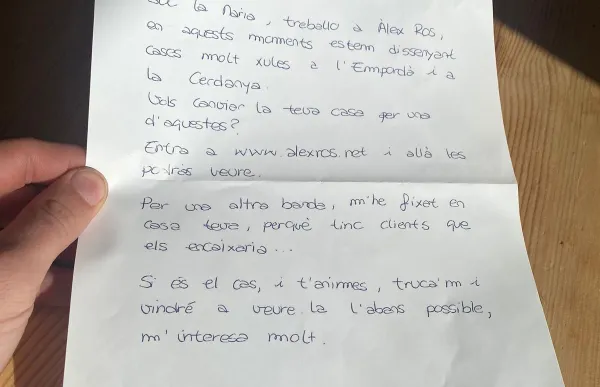 Sóc la Maria, treballo a Àlex Ros,
en aquests moments estem dissenyant
cases molt xules a l'Empordà i a
la Cerdanya.
Vols canviar la teva casa per una
d'aquestes?
Entra a www.alexros.net i allà les
podràs veure.
Per una altra banda, m'he fixat en
casa teva, perquè tinc clients que
els encaixaria...
Si és el cas, i t'animes, truca'm i
vindré a veure la l'abans possible,
m'interesa molt.